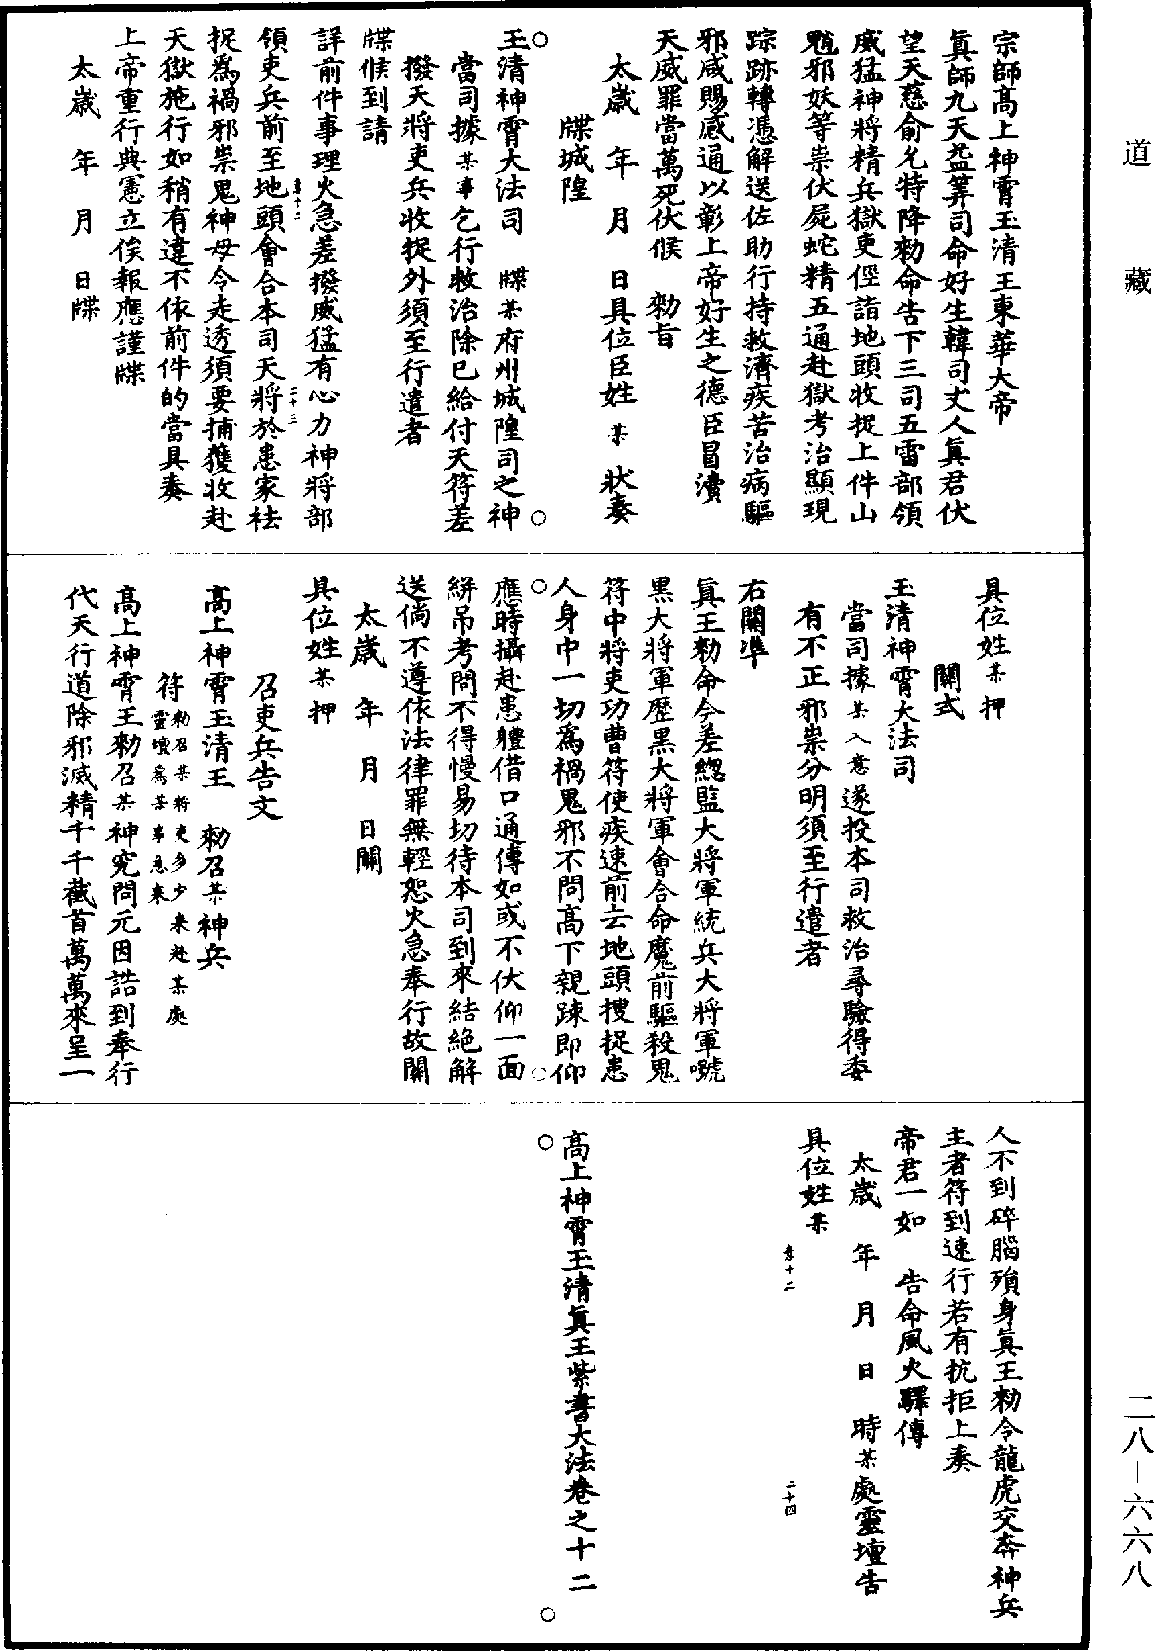 道藏
宗師高上神霄玉清王東華大帝
眞師九天益筭司命好生韓司丈人眞君伏
望天慈俞允特降勑命告下三司五雷部領
威猛神將精兵獄吏徑詣地頭收捉上件山
魈邪妖等祟伏屍蛇精五通赴獄考治顯現
踪跡轉憑解送佐助行持救濟疾苦治病驅
邪咸賜感通以彰上帝好生之德臣冒瀆
天威罪當萬死伏候 勑旨
太歲 年 月 日具位臣姓某狀奏
牒城隍
玉清神霄大法司 牒某府州城隍司之神
當司據某事乞行救治除已給付天符差
撥天將吏兵收捉外須至行遣者
牒候到請
詳前件事理火急差撥威猛有心力神將部
卷十二 二十三
領吏兵前至地頭會合本司天將於患家祛
捉爲禍邪祟鬼神毋令走透須要捕獲收赴
天獄施行如稍有違不依前件的當具奏
上帝重行典憲立俟報應謹牒
太歲 年 月 日牒
具位姓某押
關式
玉清神霄大法司
當司據某入意遂投本司救治尋驗得委
有不正邪祟分明須至行遣者
右關準
眞王勑命今差緫監大將軍統兵大將軍號
黑大將軍歷黑大將軍會合命魔前驅殺鬼
符中將吏功曹符使疾速前去地頭搜捉患
人身中一切爲禍鬼邪不問高下親踈即仰
應時攝赴患軆借口通傳如或不伏仰一面
絣吊考問不得慢易切待本司到來結絕解
送倘不遵依法律罪無輕恕火急奉行故關
太歲 年 月 日關
具位姓某押
召吏兵告文
高上神霄玉清王 勑召某神兵
符勑召某將吏多少來赴某處
靈壇爲某事急來
高上神霄王勑召某神究問元因誥到奉行
代天行道除邪滅精千千截首萬萬來呈一
人不到碎腦殞身眞王勑令龍虎交奔神兵
主者符到速行若有抗拒上奏
帝君一如 告命風火驛傳
太歲 年 月 日 時某處靈壇告
具位姓某
卷十二 二十四
高上神霄玉清眞王紫書大法卷之十二
二八—六六八